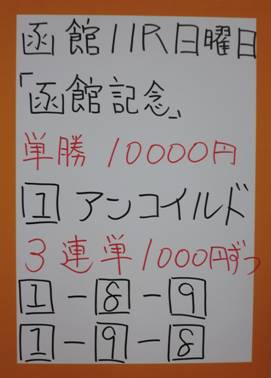 函館11R日曜日
「函館記念」
単勝 10000円
1 アンコイルド
3連単1000円ずつ
1-8-9
1-9-8